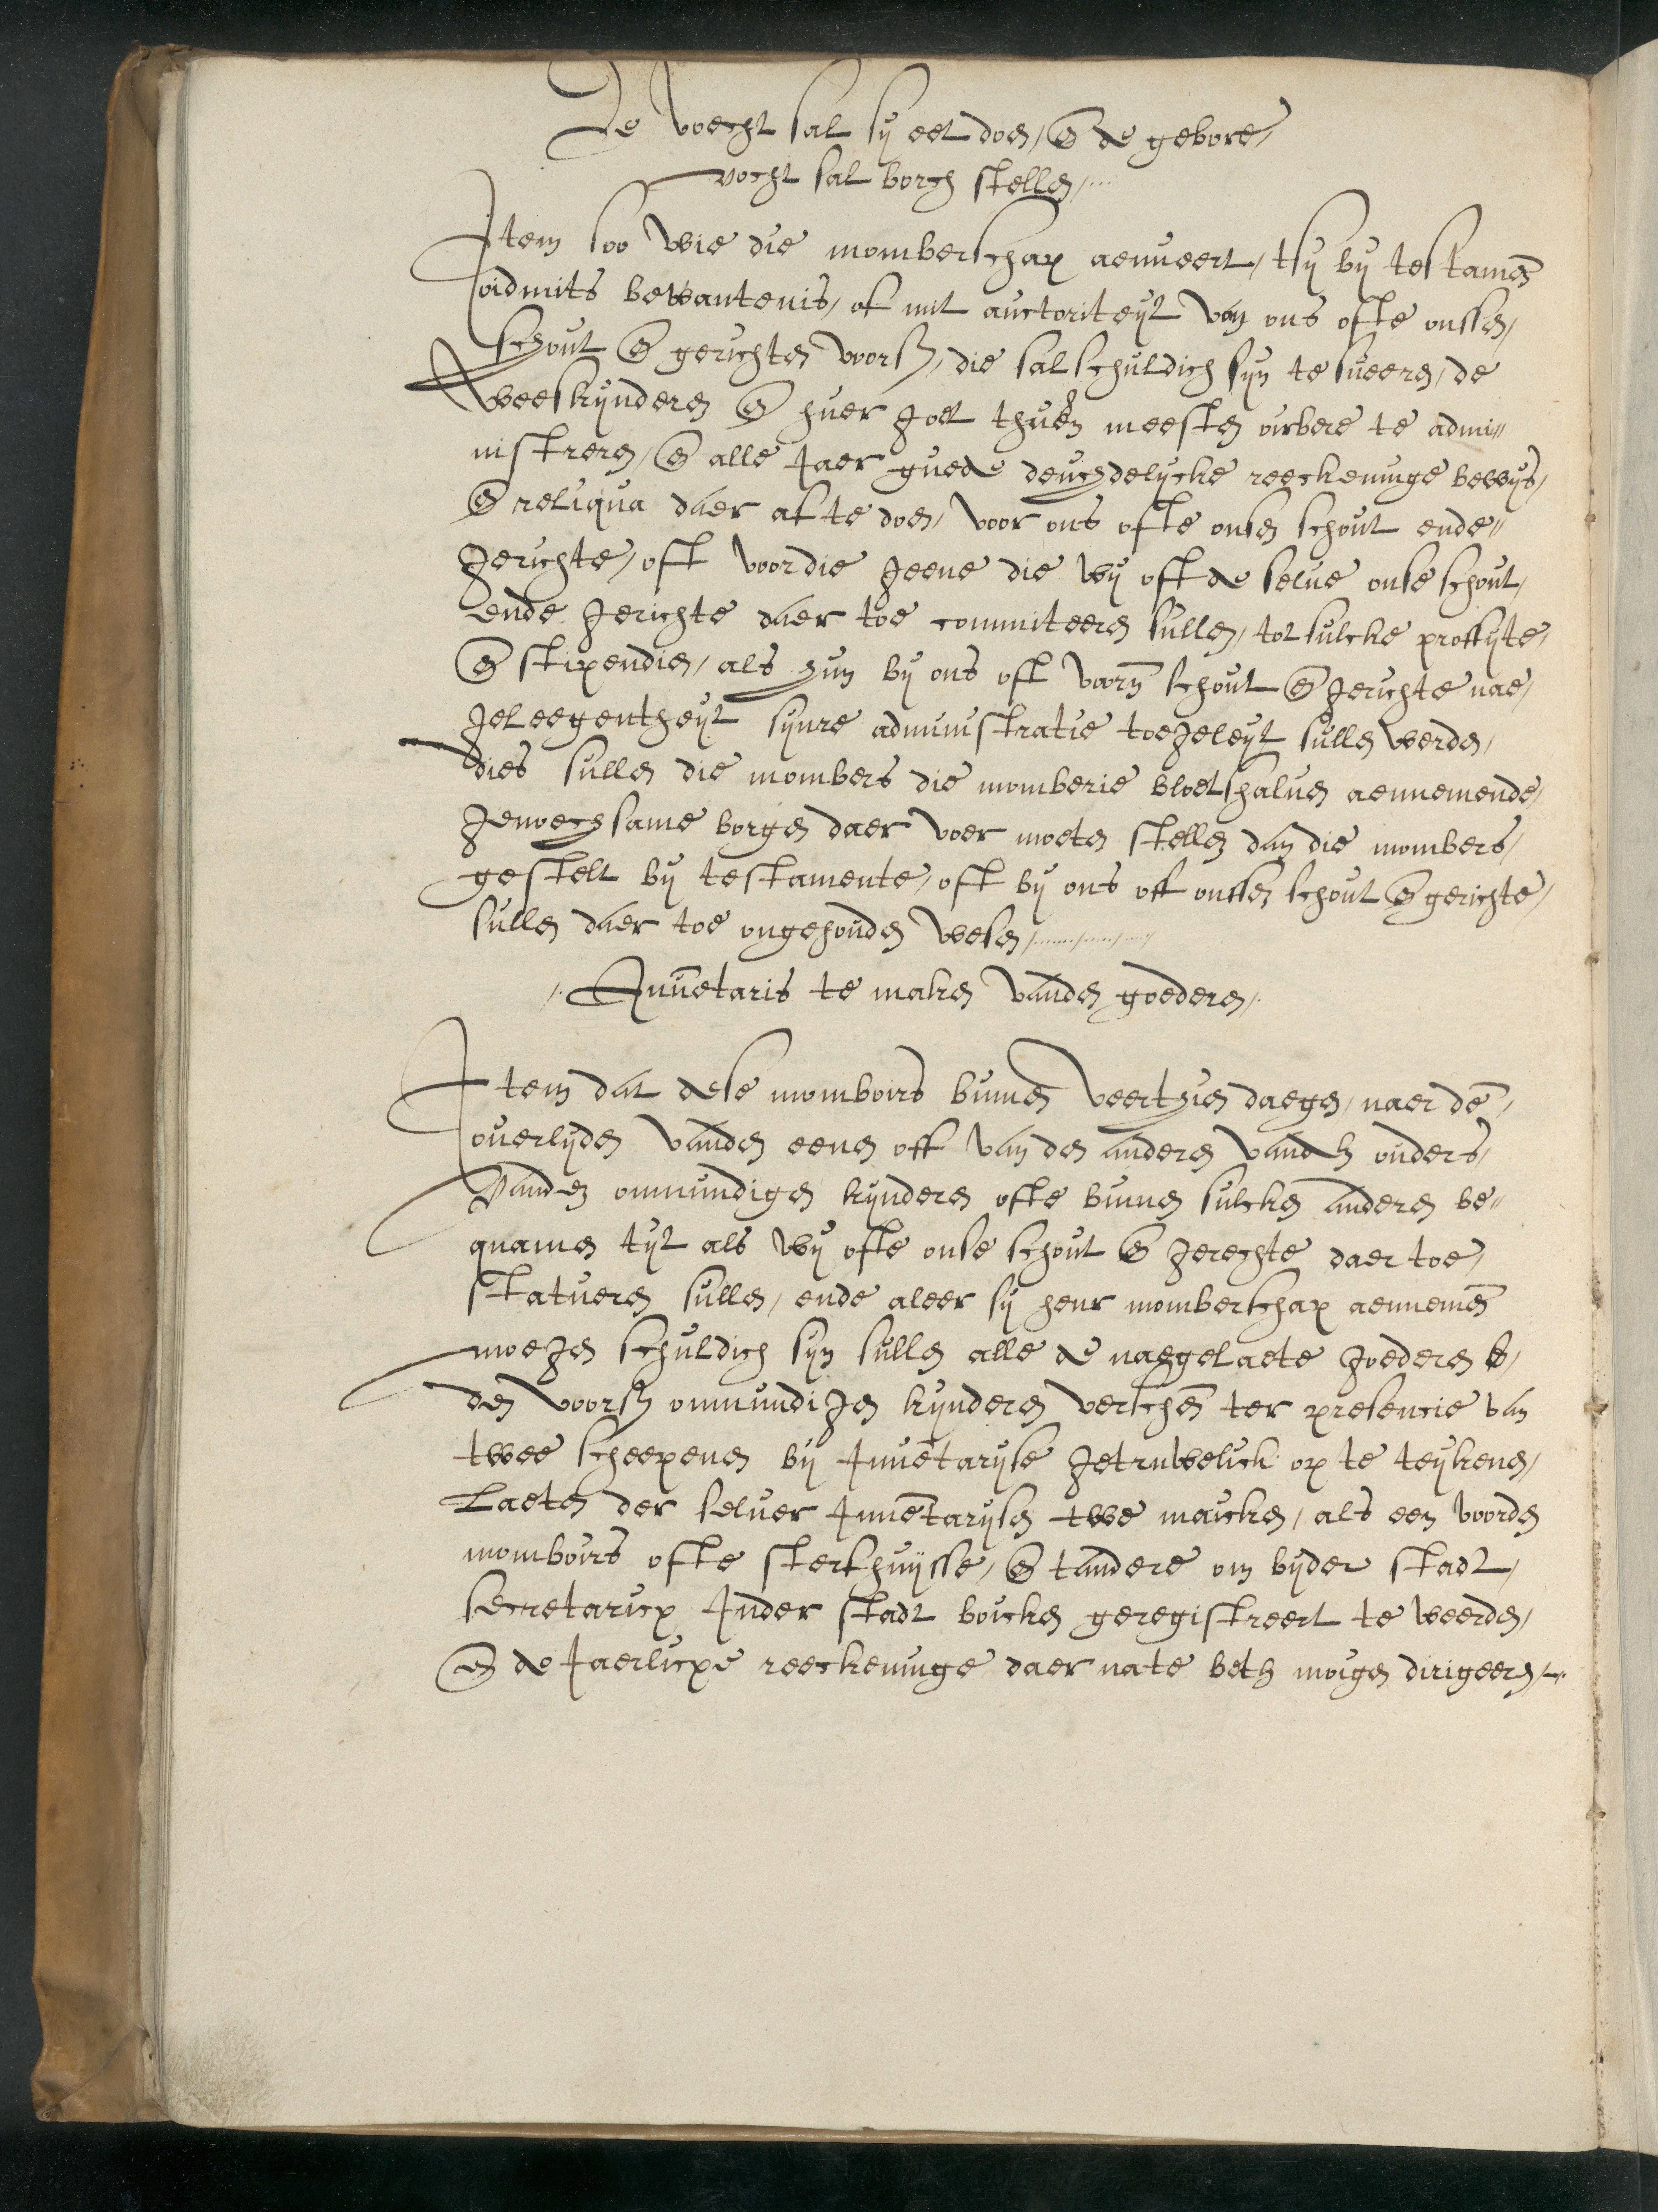 De voecht sal sy eet doen, en̄ de gebore,
vocht sal borch stellen,...
Item soo wie die momberschap aenveert, tsy by testamēt
oidmits bewantenis, of mit auctoriteyt van ons ofte onssen,
schout en̄ gerichten voirs, die sal schuldich syn te sueeren, de
weeskynderen en̄ huer goet thuēn meesten oirbere te admi//
nistreren, en̄ alle Jaer guede deuchdelycke reeckeninge bewys,
en̄ reliqua daer af te doen, voor ons ofte onsen schout ende//
gerichte, oft voor die geene die wy oft de selue onse schout,
ende gerichte daer toe commiteeren sullen, tot sulcke proffyte,
en̄ stipendien, als hun by ons oft voirn̄ schout en̄ gerichte nae,
geleegentheyt synre administratie toegeleyt sullen werden,
dies sullen die mombers die momberie bloetshaluen aennemende,
genoechsame borgen daer voer moeten stellen dan die mombers,
gestelt by testamente, oft by ons off onssen schout en̄ gerichte,
sullen daer toe ongehouden wesen,........
Inuētaris te maken vanden goederen,
Item dat dese momboirs binnen veerthien daegen, naer dē,
ouerlyden vanden eenen off van den anderen vanden ouders,
vanden onmundigen kynderen ofte binnen sulcken anderen be//
quamen tyt als wy ofte onse schout en̄ gerechte daer toe,
statueren sullen, ende aleer sy heur momberschap aennemē
moegen schuldich syn sullen alle de naegelaete goederen
den voirs onmundigen kynderen verschenē ter presencie van
twee scheepenen by Inuētaryse getruwelick op te teykenen,
Laeten der seluer Inuētarysen twe maicken, als een voorden
momboirs ofte sterfhuysse, en̄ tandere om byder stadt,
secretaricx Inder stadt boicken geregistreert te weerden,
en̄ de Jaerlicxe reeckeninge daer nate beth moigen dirigeeren,